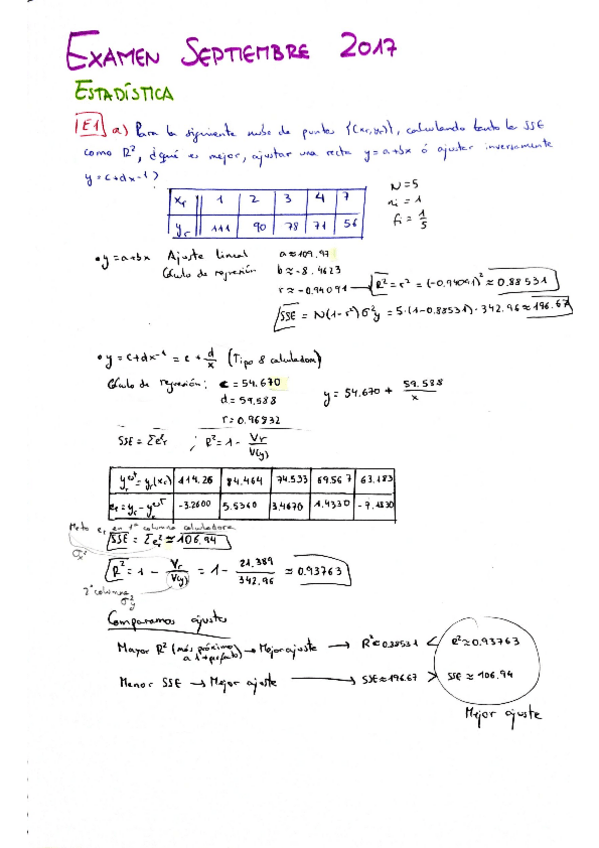 EXAMEN SEPTIEMBRE 2017
ESTADÍSTICA
E1 a) Para la siguiente nube de puntos {(xr,yr)}, calculando tanto la SSE
como R², ¿qué es mejor, ajustar una recta y=a+bx ó ajustar inversamente
y=c+dx⁻¹?
xr 1 2 3 4 7
yr 111 90 78 71 56
N=5
ni=1
fi=1/5
• y=a+bx Ajuste lineal a≈109.97
Cálculo de regresión b≈-8.4623
r≈-0.94091 → R²=r²=(-0.94091)²≈0.88531
SSE = N(1-r²)σ²y = 5·(1-0.88531)·342.96≈196.67
• y=c+dx⁻¹ = c + d/x (Tipo 8 calculadora)
Cálculo de regresión: c=54.670
d=59.588
r=0.96832
y=54.670 + 59.588/x
SSE=Σe²r ; R²=1- Vr/V(y)
yr^est=yr(xr) 114.26 84.464 74.533 69.567 63.183
er=yr-yr^est -3.2600 5.5360 3.4670 1.4330 -7.1830
Meto er en 1ª columna calculadora
SSE = Σe²r ≈106.94
σx²
R²=1- Vr/V(y) = 1- 21.389/342.96 ≈ 0.93763
2ª columna σ²y
Comparamos ajustes
Mayor R² (más próximo a 1 → perfecto) → Mejor ajuste → R²≈0.88531 < R²≈0.93763
Menor SSE → Mejor ajuste → SSE≈196.67 > SSE≈106.94
Mejor ajuste